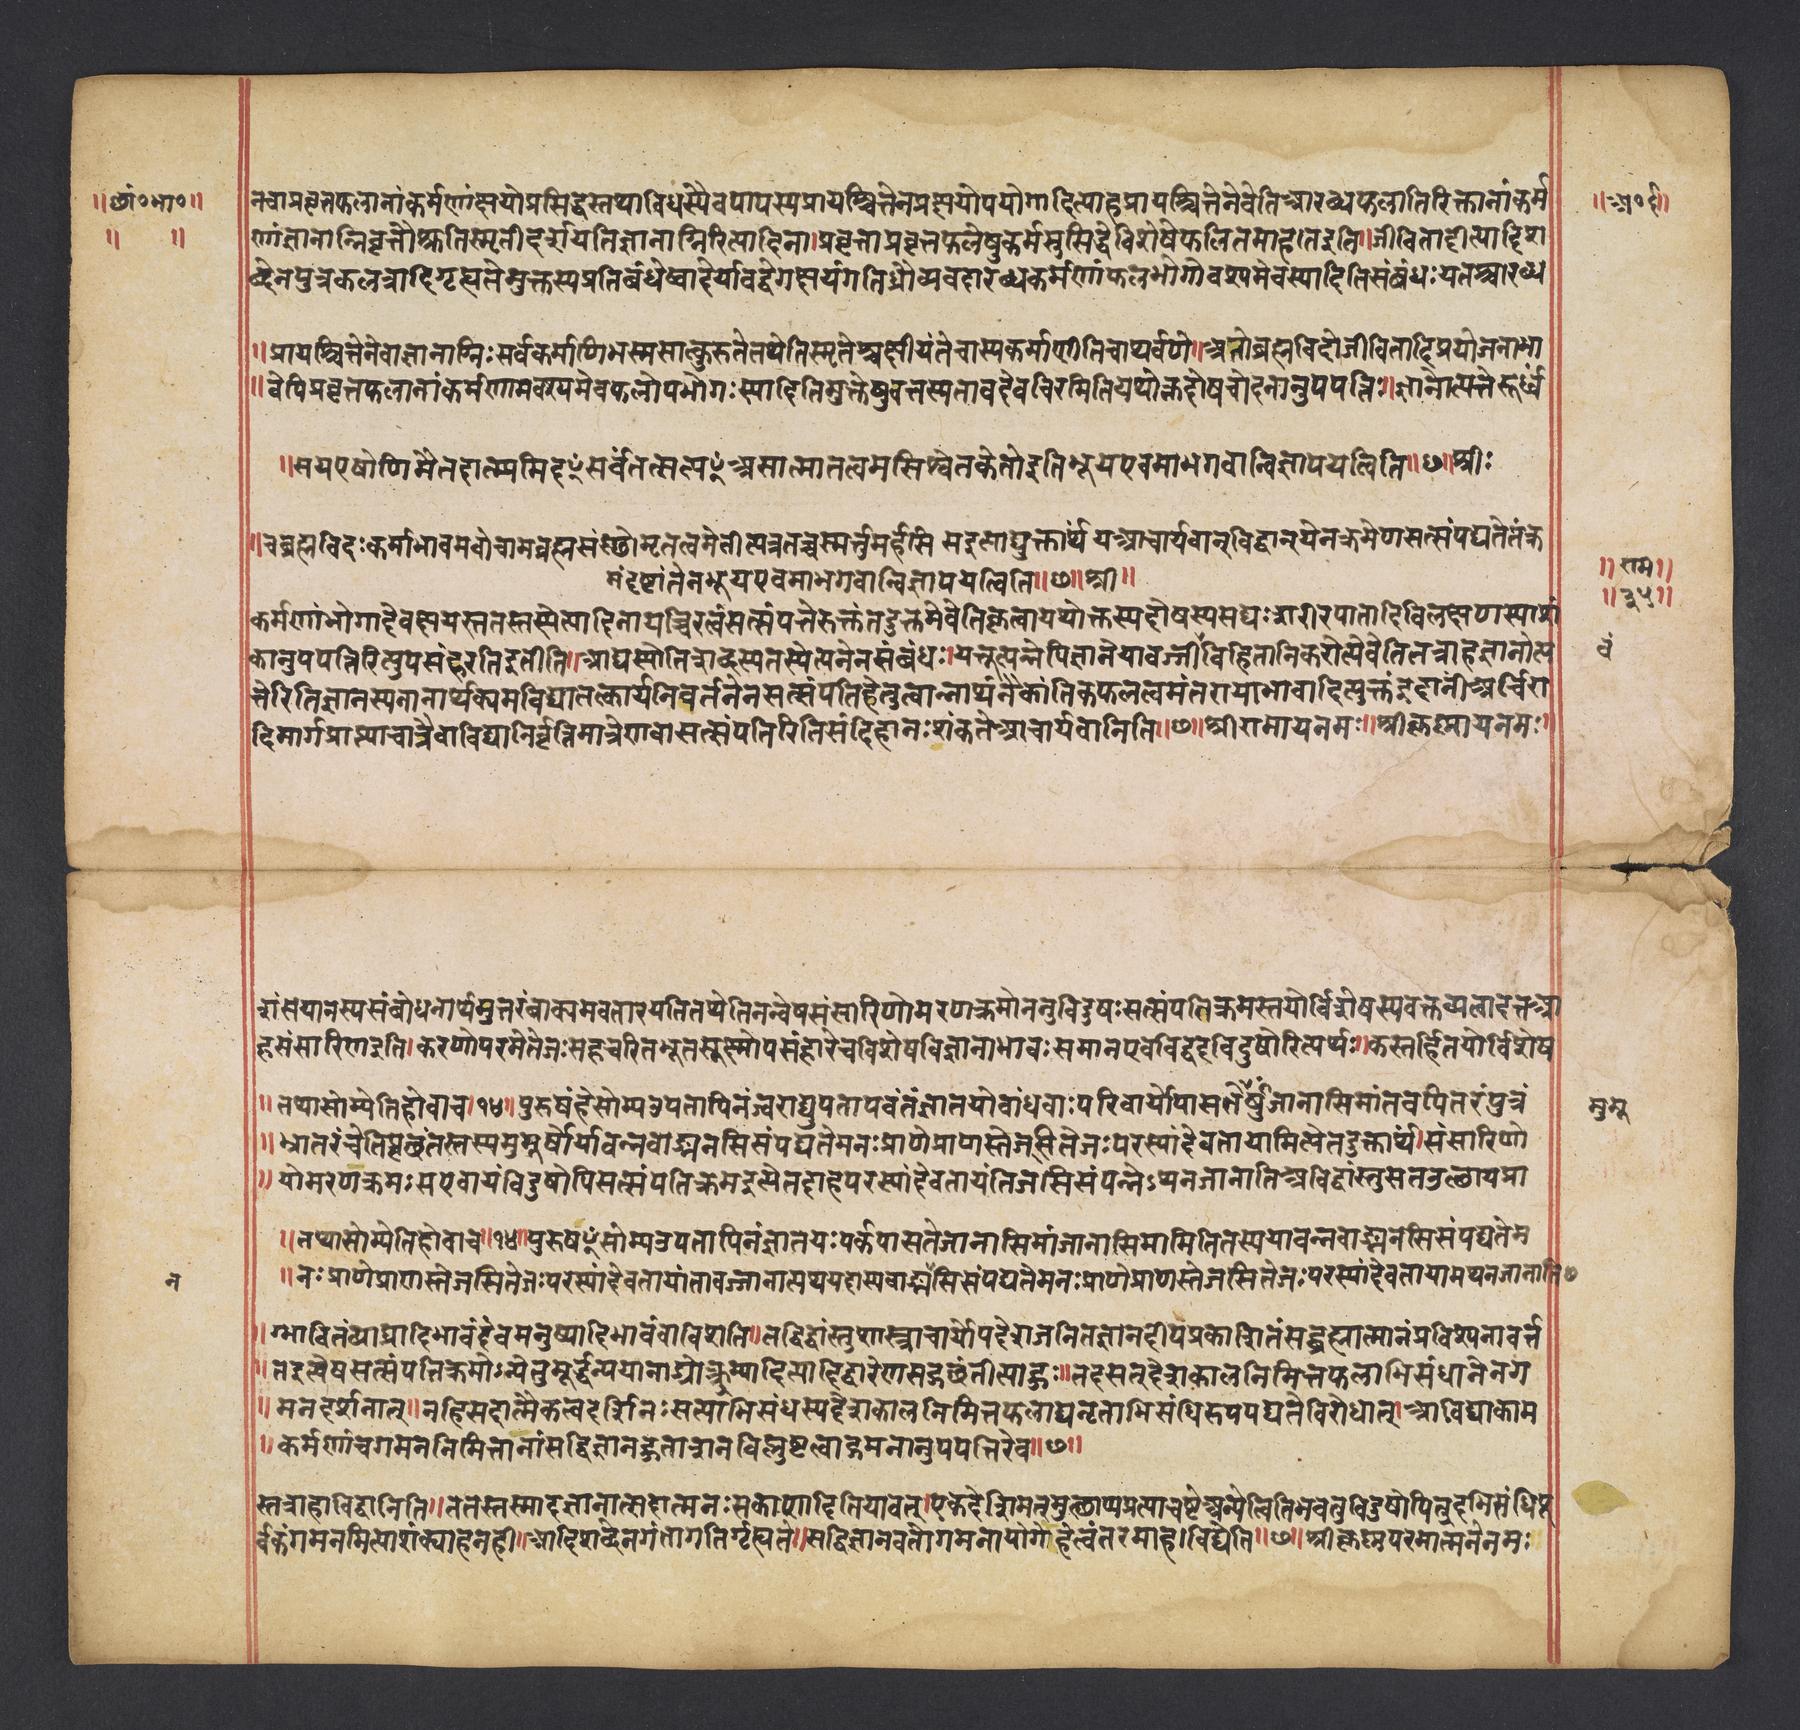 ॥छां०भा०॥
॥ ॥
॥अ०६॥
नचाप्रवृत्तफलानांकर्मणांक्षयोप्रसिद्धस्तथाविधस्यैवपापस्यप्रायश्चित्तेनप्रक्षयोपयोगादित्याहप्रायश्चित्तेनैवेतिआरब्धफलातिरिक्तानांकर्म
णांज्ञानान्निवृत्तौश्रुतिस्मृतीदर्शयतिज्ञानाग्निरित्यादिना।प्रवृत्ताप्रवृत्तफलेषुकर्मसुसिद्धेविशेषेफलितमाहातइति॥जीवितादीत्यादिश
ब्देनपुत्रकलत्रादिगृह्यतेमुक्तस्यप्रतिबंधेष्वादेर्यावद्वेगक्षयंगतिध्रौव्यवदारब्धकर्मणांफलभोगोवश्यमेवस्यादितिसंबंधःयतआरब्ध
॥प्रायश्चित्तेनेवाज्ञानाग्निःसर्वकर्माणिभस्मसात्कुरुतेतथेतिस्मृतेश्चक्षीयंतेचास्यकर्माणीतिचाथर्वणे॥अतोब्रह्मविदोजीवितादिप्रयोजनाभा
॥वेपिप्रवृत्तफलानांकर्मणामवश्यमेवफलोपभोगःस्यादितिमुक्तेषुवत्तस्यतावदेवचिरमितियथोक्तदोषचोदनानुपपत्तिः॥ज्ञानोत्पत्तेरूर्ध्वं
॥सयएषोणिमैतदात्म्यमिदꣳसर्वंतत्सत्यꣳसआत्मातत्वमसिश्वेतकेतोइतिभूयएवमाभगवान्विज्ञापयत्विति॥छ॥श्रीः
॥चब्रह्मविदःकर्माभावमवोचामब्रह्मसंस्छोमृतत्वमेतीत्यत्रतच्चस्मर्तुमर्हसि सइत्याद्युक्तार्थंयआचार्यवान्विद्वान्येनक्रमेणसत्संपद्यतेतंक्र
मंदृष्टांतेनभूयएवमाभगवान्विज्ञापयत्विति॥छ॥श्री॥
॥राम॥
॥३५॥
कर्मणांभोगादेवक्षयस्ततस्तस्येत्यादिनायच्चिरत्वंसत्संपत्तेरुक्तंतद्युक्तमेवेतिकृत्वायथोक्तस्यदोषस्यसद्यःशरीरपातादिविलक्षणस्याशं
कानुपपत्तिरित्युपसंहरतिइतीति॥आद्यस्येतिशब्दस्यतस्येत्यनेनसंबंधः।यत्तूत्पन्नेपिज्ञानेयावज्जीविहितानिकरोत्येवेतितत्राहज्ञानोत्प
वं
त्तेरितिज्ञानस्यनानार्थक्यमविद्यातत्कार्यनिवर्तनेनसत्संपत्तिहेतुत्वान्नाप्यनैकांतिकफलत्वमंतरायाभावादित्युक्तंइदानींअर्चिरा
दिमार्गप्राप्त्याचात्रैवाविद्यानिर्वृत्तिमात्रेणवासत्संपत्तिरितिसंदिहानःशंकतेआचार्यवानिति॥छ॥श्रीरामायनमः॥श्रीकृष्णायनमः॥
शंसयानस्यसंबोधनार्थमुत्तरंवाक्यमवतारयतितथेतिनन्वेषसंसारिणोमरणक्रमोननुविदुषःसत्संपत्तिक्रमस्तयोर्विशेषस्यवक्तव्यत्वादत्तआ
हसंसारिणइति।करणोपरमेतेजःसहचरितभूतसूक्ष्मोपसंहारेचविशेषविज्ञानाभावःसमानएवविद्वदविदुषोरित्यर्थः॥कस्तर्हितयोर्विशेष
॥तथासोम्येतिहोवाच॥१४॥पुरुषंहेसोम्यउपतापिनंज्वराद्युपतापवंतंज्ञातयोबांधवाःपरिवार्योपासतेर्षुंजानासिमांतवपितरंपुत्रं
मुमू
॥भ्रातरंचेतिपृछंतस्तस्यमुमूर्षोर्यावन्नवाङ्मनसिसंपद्यतेमनःप्राणेप्राणस्तेजसितेजःपरस्यांदेवतायामित्येतदुक्तार्थं।संसारिणो
॥योमरणक्रमःसएवायंविदुषोपिसत्संपत्तिक्रमइत्येतदाहपरस्यांदेवतायांतेजसिसंपन्नेऽथनजानातिअविद्वांस्तुसतउत्थायप्रा
॥तथासोम्येतिहोवाच॥१४॥पुरुषꣳसोम्यउपतापिनंज्ञातयःपर्युपासतेजानासिमांजानासिमामितितस्ययावन्नवाङ्मनसिसंपद्यतेम
॥नःप्राणेप्राणस्तेजसितेजःपरस्यांदेवतायांतावज्जानात्यथयदास्यवाङ्मसिसंपद्यतेमनःप्राणेप्राणस्तेजसितेजःपरस्यांदेवतायामथनजानातिछ
न
॥ग्भावितंव्याघ्रादिभावंदेवमनुष्यादिभावंवाविशति॥तद्विद्वांस्तुशास्त्राचार्योपदेशजनितज्ञानदीपप्रकाशितंसद्ब्रह्मात्मानंप्रविश्यनावर्त्त
॥तइत्येषसत्संपत्तिक्रमोऽन्येतुमूर्द्धन्ययानाड्योत्क्रम्यादित्यादिद्वारेणसद्गछंतीत्याहुः॥तदसत्देशकालनिमित्तफलाभिसंधानेनग
॥मनदर्शनात्॥नहिसदात्मैकत्वदर्शिनःसत्याभिसंधस्यदेशकालनिमित्तफलाद्यनृताभिसंधिरुपपद्यतेविरोधात्।अविद्याकाम
॥कर्मणांचगमननिमित्तानांसद्विज्ञानहुताशनविप्लुष्टत्वाद्गमनानुपपत्तिरेव॥छ॥
स्तत्राहाविद्वानिति॥ततस्तस्मादज्ञानात्सदात्मनःसकाशादितियावत्।एकदेशिमतमुत्थाप्यप्रत्याचष्टेअन्येत्वितिभवतुविदुषोपितदभिसंधिपू
र्वकंगमनमित्याशंक्याहनही॥आदिशब्देनगंतागतिर्गृह्यते॥सद्विज्ञानवतोगमनायोगेहेत्वंतरमाह।विद्येति॥छ॥श्रीकृष्णपरमात्मनेनमः